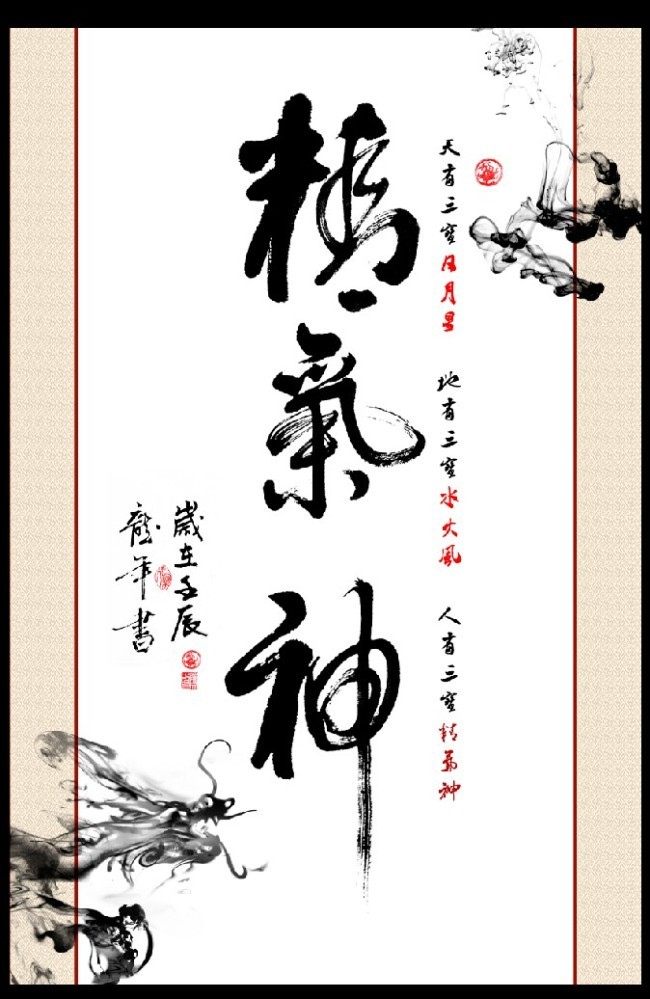 天有三寳日月星 地有三寳水火風 人有三寳精氣神
精氣神
歲在壬辰
龍年書